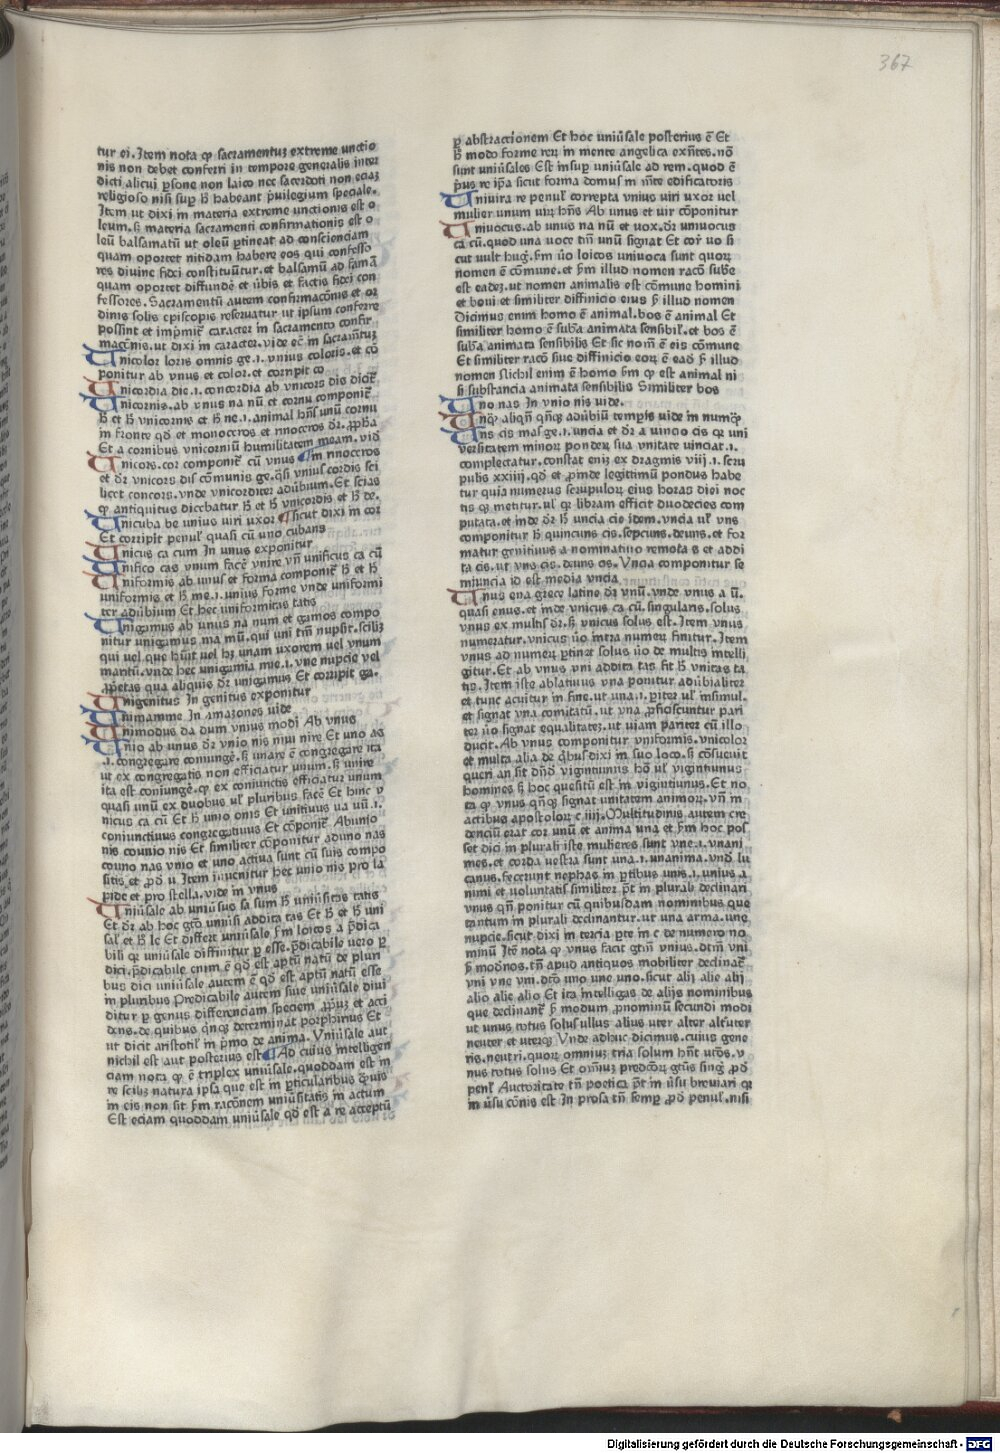 367
tur ei. Item nota ꝙ sacramentuꝫ extreme unctio
nis non debet conferri in tempore generalis inter
dicti alicui ꝑsone non laico nec sacerdoti non eciaꝫ
religioso nisi suꝑ ħ habeant p̄uilegium speciale.
Item ut dixi in materia extreme unctionis est o
leum. ꝫ materia sacramenti confirmationis est o
leū balsamatū ut oleū ꝑtineat ad conscienciam
quam oportet nitidam habere eos qui confesso
res diuine fidei constituūtur. et balsamū ad famā
quam oportet diffundē et ūbis et factis fidei con
fessores. Sacramentū autem confirmacōnis et or
dinis solis episcopis reseruatur ut ipsum conferre
possint et imprimit̄ caracter in sacramento confir
macōnis. ut dixi in caracter. vide ec̄ in sacram̄tuꝫ
Unicolor loris omnis ge. i. vnius coloris. et cō
ponitur ab vnus et color. et corripit co
Unicordia die. i. concordia ab vnicors dis dicit̄
Unicornis. ab vnus na nū et cornu componit̄
ħ et ħ vnicornis et ħ ne. i. animal hn̄s unū cornu
in fronte qd̄ et monoceros et rinoceros dr̄. ꝓph̄a
Et a cornibus vnicorniū humilitatem meam. vid̄
Unicors. cor componit̄ cū vnus in rinoceros
et dr̄ vnicors dis cōmunis ge. qͣsi vnius cordis sci
licet concors. vnde vnicorditer adūbium. Et scias
ꝙ antiquitus dicebatur ħ et ħ vnicordis et ħ de.
Unicuba be unius uiri uxor sicut dixi in cor
Et corripit penul̄ quasi cū uno cubans
Unicus ca cum In unus exponitur
Unifico cas vnum facē vnire vn̄ unificus ca cū
Uniformis ab unus et forma componit̄ ħ et ħ
uniformis et ħ me. i. unius forme vnde uniformi
ter adūbium Et hec uniformitas tatis
Unigamus ab vnus na num et gamos compo
nitur unigamus ma mū. qui uni tm̄ nupsit. scilꝫ
qui vel que hūit vel hꝫ unam uxorem vel vnum
maritū. vnde hec unigamia mie. i. vne nupcie vel
ꝓp̄etas qua aliquis dr̄ unigamus Et corripit ga.
Unigenitus In genitus exponitur
Unimamme In amazones uide
Unimodus da dum vnius modi Ab vnus
Unio ab unus dr̄ vnio nis niui nire Et uno as
.i. congregare coniungē. ꝫ unare ē congregare ita
ut ex congregatis non efficiatur unum. ꝫ unire
ita est coniungē. ꝙ ex coniunctis efficiatur unum
quasi unū ex duobus ul̄ pluribus facē Et hinc v
nicus ca cū Et ħ unio onis Et unitiuus ua uū. i.
coniunctiuus congregatiuus Et cōponit̄ Abunio
nis counio nis Et similiter cōponitur aduno nas
couno nas vnio et uno actiua sunt cū suis compo
sitis et ꝓd̄ u Item inuenitur hec unio nis pro la
pide et pro stella. vide in vnus
Uniūsale ab uniūsus sa sum ħ uniūsitas tatis
Et dr̄ ab hoc gtō uniūsi addita tas Et ħ et ħ uni
sal̄ et ħ le Et differt uniūsale ẜm loicos a p̄dica
bili qꝛ uniūsale diffinitur ꝑ esse. p̄dicabile uero ꝑ
dici. p̄dicabile enim ē qd̄ est aptū natū de pluri
bus dici uniūsale autem ē qd̄ est aptū natū esse
in pluribus Predicabile autem siue uniūsale diui
ditur ꝑ genus differenciam speciem ꝓpͥuꝫ et acci
dens. de quibus qͥnqꝫ determinat porphirius Et
ut dicit aristotil̄ in pͥmo de anima. Vniūsale aut
nichil est aut posterius est Ad cuius intelligen
ciam nota ꝙ ē triplex uniūsale. quoddam est in
re scilꝫ natura ipsa que est in ꝑticularibus qͣuis
in eis non sit ẜm raconem uniūsitatis in actum
Est eciam quoddam uniūsale qd̄ est a re acceptū
ꝑ abstractionem Et hoc uniūsale posterius ē Et
ħ modo forme reꝝ in mente angelica exn̄tes. nō
sunt uniūsales Est insuꝑ uniūsale ad rem. quod ē
pͥus re ip̄a sicut forma domus in m̄te edificatoris
Uniuira re penul̄ correpta vnius uiri uxor uel
mulier unum uiꝝ hn̄s Ab unus et uir cōponitur
Uniuocus. ab unus na nū et uox. dr̄ uniuocus
ca cū. quod una uoce tm̄ unū signat Et corͥ uo si
cut uult huḡ. ẜm ūo loicos uniuoca sunt quoꝝ
nomen ē cōmune. et ẜm illud nomen racō sub̄e
est eadeꝫ. ut nomen animalis est cōmune homini
et boui et similiter diffinicio eius ẜ illud nomen
Dicimus enim homo ē animal. bos ē animal Et
similiter homo ē sub̄a animata sensibil̄. et bos ē
sub̄a animata sensibilis Et sic nom̄ ē eis cōmune
Et similiter racō siue diffinicio eoꝝ ē ead̄ ẜ illud
nomen s̄ichil enim ē homo ẜm ꝙ est animal ni
si substancia animata sensibilis Similiter bos
Uno nas In vnio nis vide.
Unqͣ aliqn̄ qn̄qꝫ adūbiū tempīs uide in numqͣ
Uns cis mas̄ ge. i. uncia et dr̄ a uincio cis qꝛ uni
versitatem minoꝝ pondeꝝ sua vnitate uinciat. i.
complectatur. constat eniꝫ ex dragmis viij. i. scru
pulis xxiiij. qd̄ et ꝓinde legittimū pondus habe
tur quia numerus scrupuloꝝ eius horas diei noc
tis qꝫ metitur. ul̄ qꝛ libram efficit duodecies com
putata. et inde dr̄ ħ uncia cie Item. vncia ul̄ vns
componitur ħ quincuns cis. sepcuns. deuns. et for
matur genitiuus a nominatiuo remota s et addi
ta cis. ut vns cis. deuns cis. Vncia componitur se
miuncia id est media vncia
Unus ena grece latine dr̄ vnū. vnde vnus a ū.
quasi enus. et inde vnicus ca cū. singularis. solus
vnus ex multis dr̄. ꝫ vnicus solus est. Item vnus
numeratur. vnicus ūo intra numeꝝ finitur. Item
vnus ad numeꝝ ꝑtinet solus ūo de multis intelli
gitur. Et ab vnus vni addita tas fit ħ vnitas ta
tis. Item iste ablatiuus vna ponitur adūbialiter
et tunc acuitur in fine. ut una. i. ꝑiter ul̄ insimul.
et signat vna comitatū. ut vna ꝓficiscuntur pari
ter ūo signat equalitateꝫ. ut uiam pariter cū illo
ducit. Ab vnus componitur vniformis. vnicolor
et multa alia de qͥbus dixi in suo loco. ꝫ cōsueuit
queri an sit dn̄d̄ vigintiunus hō ul̄ vigintiunus
homines ꝫ hoc quesitū est in vigintiunus. Et no
ta ꝙ vnus qn̄qꝫ signat unitatem animoꝝ. vn̄ in
actibus apostoloꝝ c iiij. Multitudinis autem cre
denciū erat cor unū et anima una et ẜm hoc pos
set dici in plurali iste mulieres sunt vne. i. vnani
mes. et corda uestra sunt una. i. unanima. vnd̄ lu
canus. fecerunt nephas in ꝑtibus unis. i. unius a
nimi et voluntatis similiter pt̄ in plurali declinari
vnus qn̄ ponitur cū quibusdam nominibus que
tantum in plurali declinantur. ut una arma. une
nupcie. sicut dixi in tercia ꝑte in c de numero no
minū Itē nota ꝙ vnus facit gtm̄ vnius. dtm̄ vni
ẜ mod̄nos. tn̄ apud antiquos mobiliter declinat̄
vni vne vni. dtō uno une uno. sicut alij alie alij
alio alie alio Et ita intelligas de alijs nominibus
que declinant̄ ẜ modum ꝓnominū secundi modi
ut unus totus solus ullus alius uter alter alt̄uter
neuter et uterqꝫ Vnde adhuc dicimus. cuius gene
ris. neutri. quoꝝ omniuꝫ tria solum hn̄t ut̄os. v
nus totus solus Et om̄iuꝫ predcōꝝ gtūs singͣ ꝓd̄
penul̄ Auctoritate tn̄ poetica pt̄ in ūsu breuiari qꝛ
in ūsu cōnis est In prosa tn̄ semꝑ ꝓd̄ penul̄. nisi
Digitalisierung gefördert durch die Deutsche Forschungsgemeinschaft - DFG